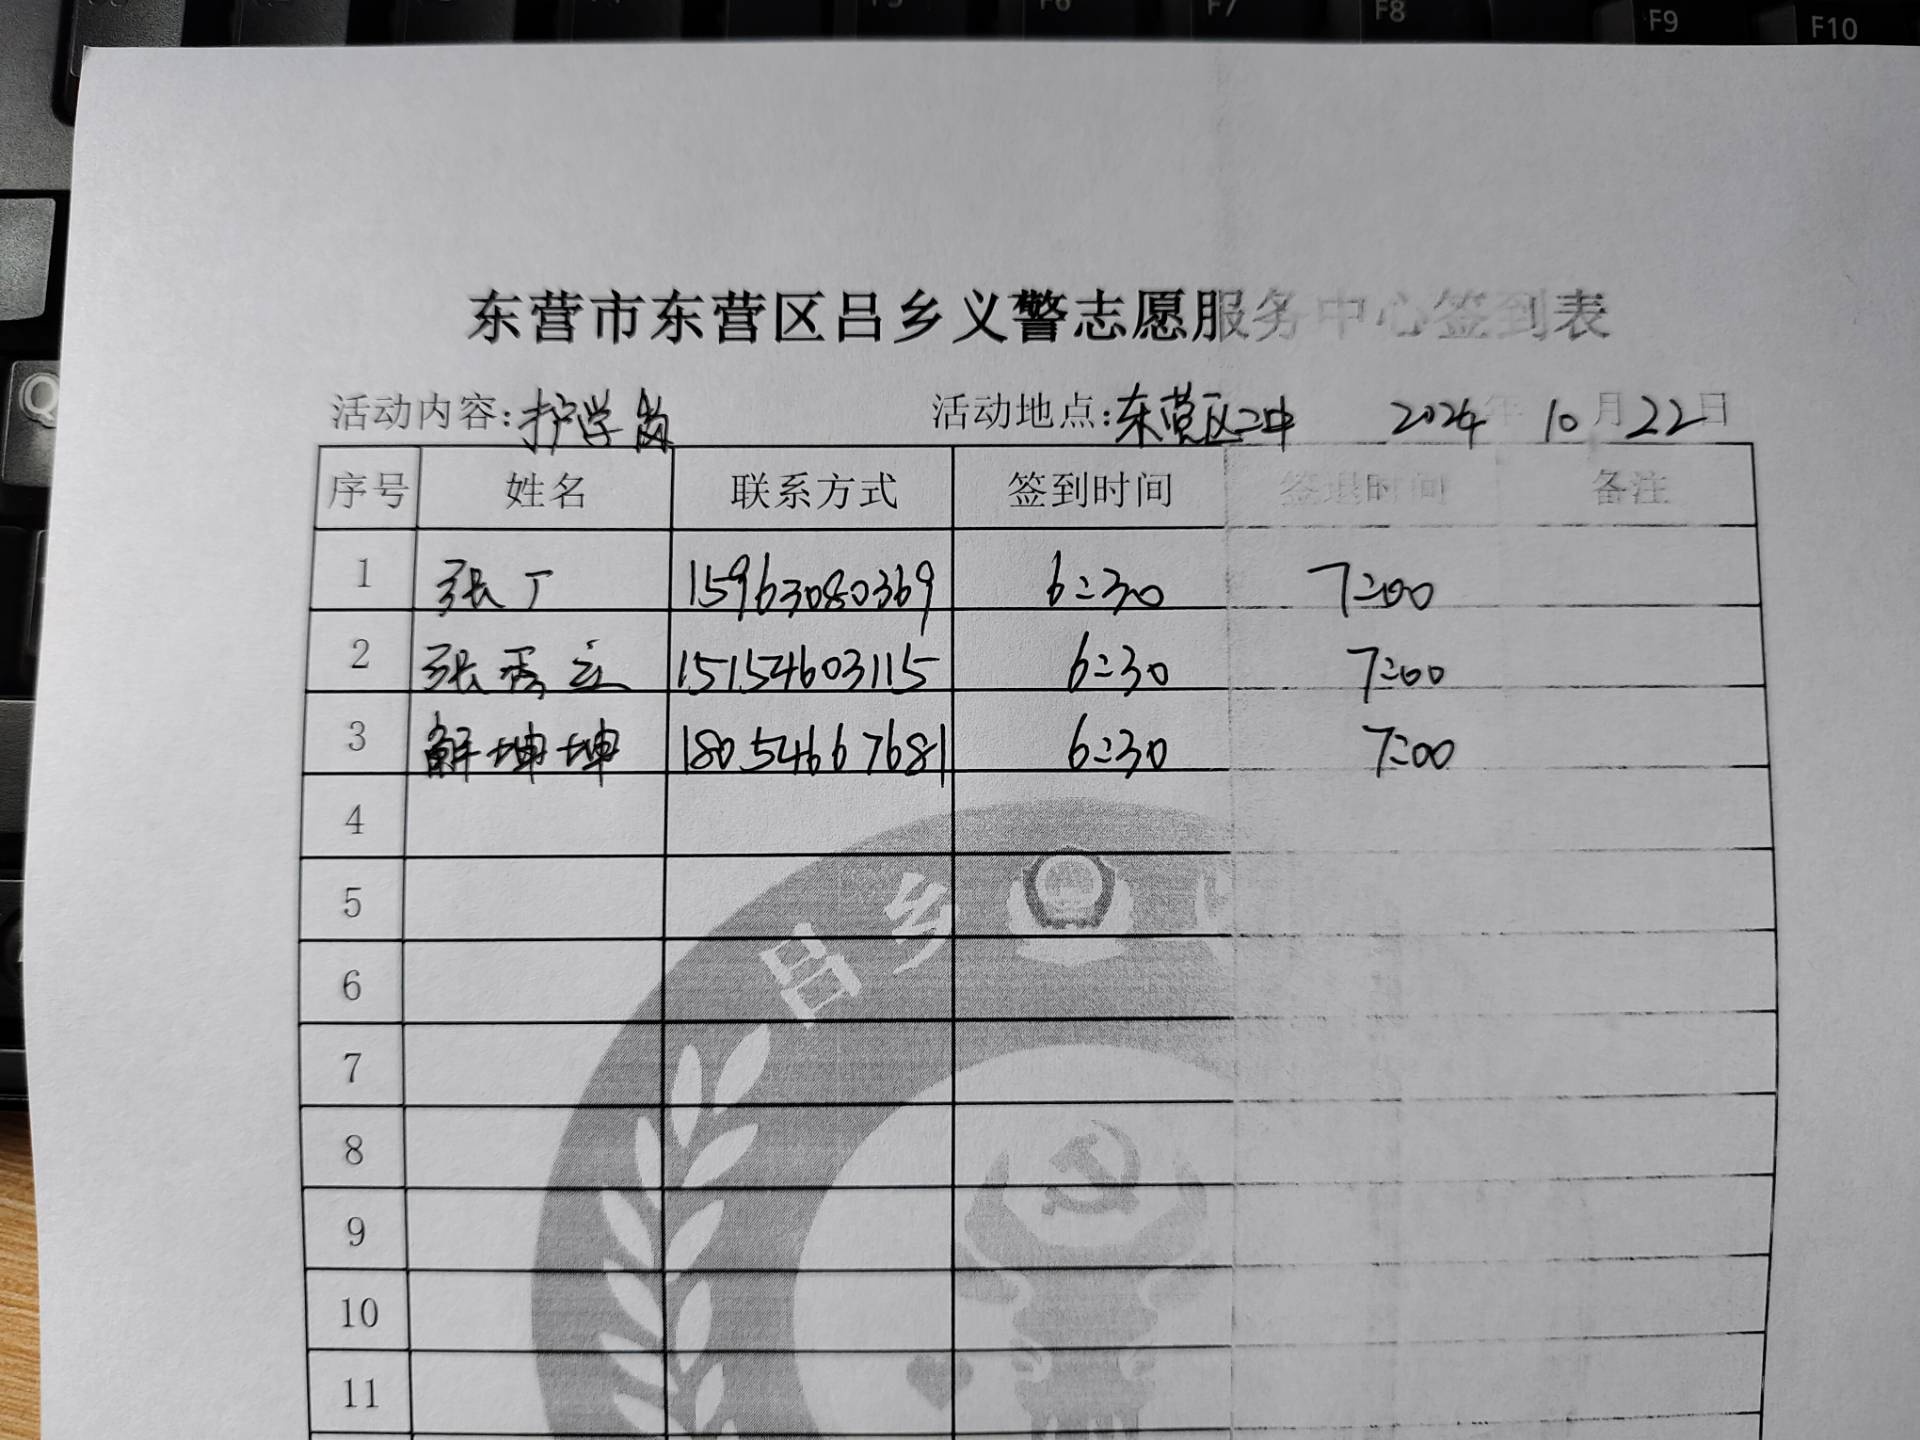 F6 F7 F8 F9 F10
Q
东营市东营区吕乡义警志愿服务中心签到表
活动内容:护学岗 活动地点:东营区二中 2024年 10月22日
序号 姓名 联系方式 签到时间 签退时间 备注
1 张丁 15963080369 6:30 7:00
2 张秀立 15154603115 6:30 7:00
3 解坤坤 18054667681 6:30 7:00
4
5
6
7
8
9
10
11
吕乡